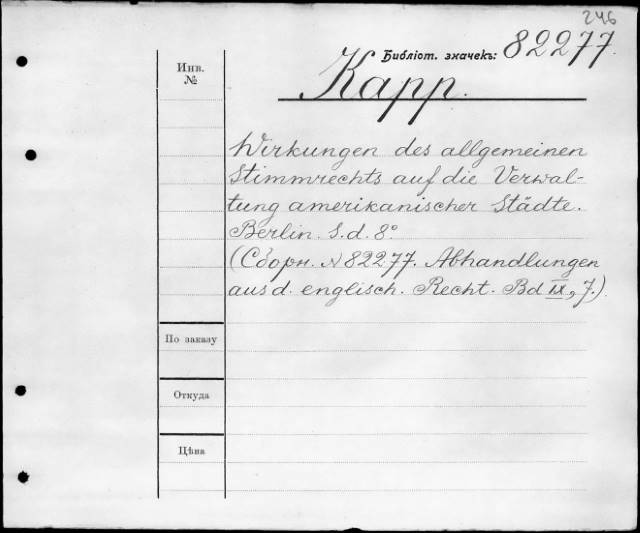 246
Библіот. значекъ: 82277.
Инв.
№
Kapp.
Wirkungen des allgemeinen
Stimmrechts auf die Verwal-
tung amerikanischer Städte.
Berlin. S. d. 8°
(Сборн. № 82277. Abhandlungen
aus d. englisch. Recht. Bd IX, 7.)
По заказу
Откуда
Цѣна